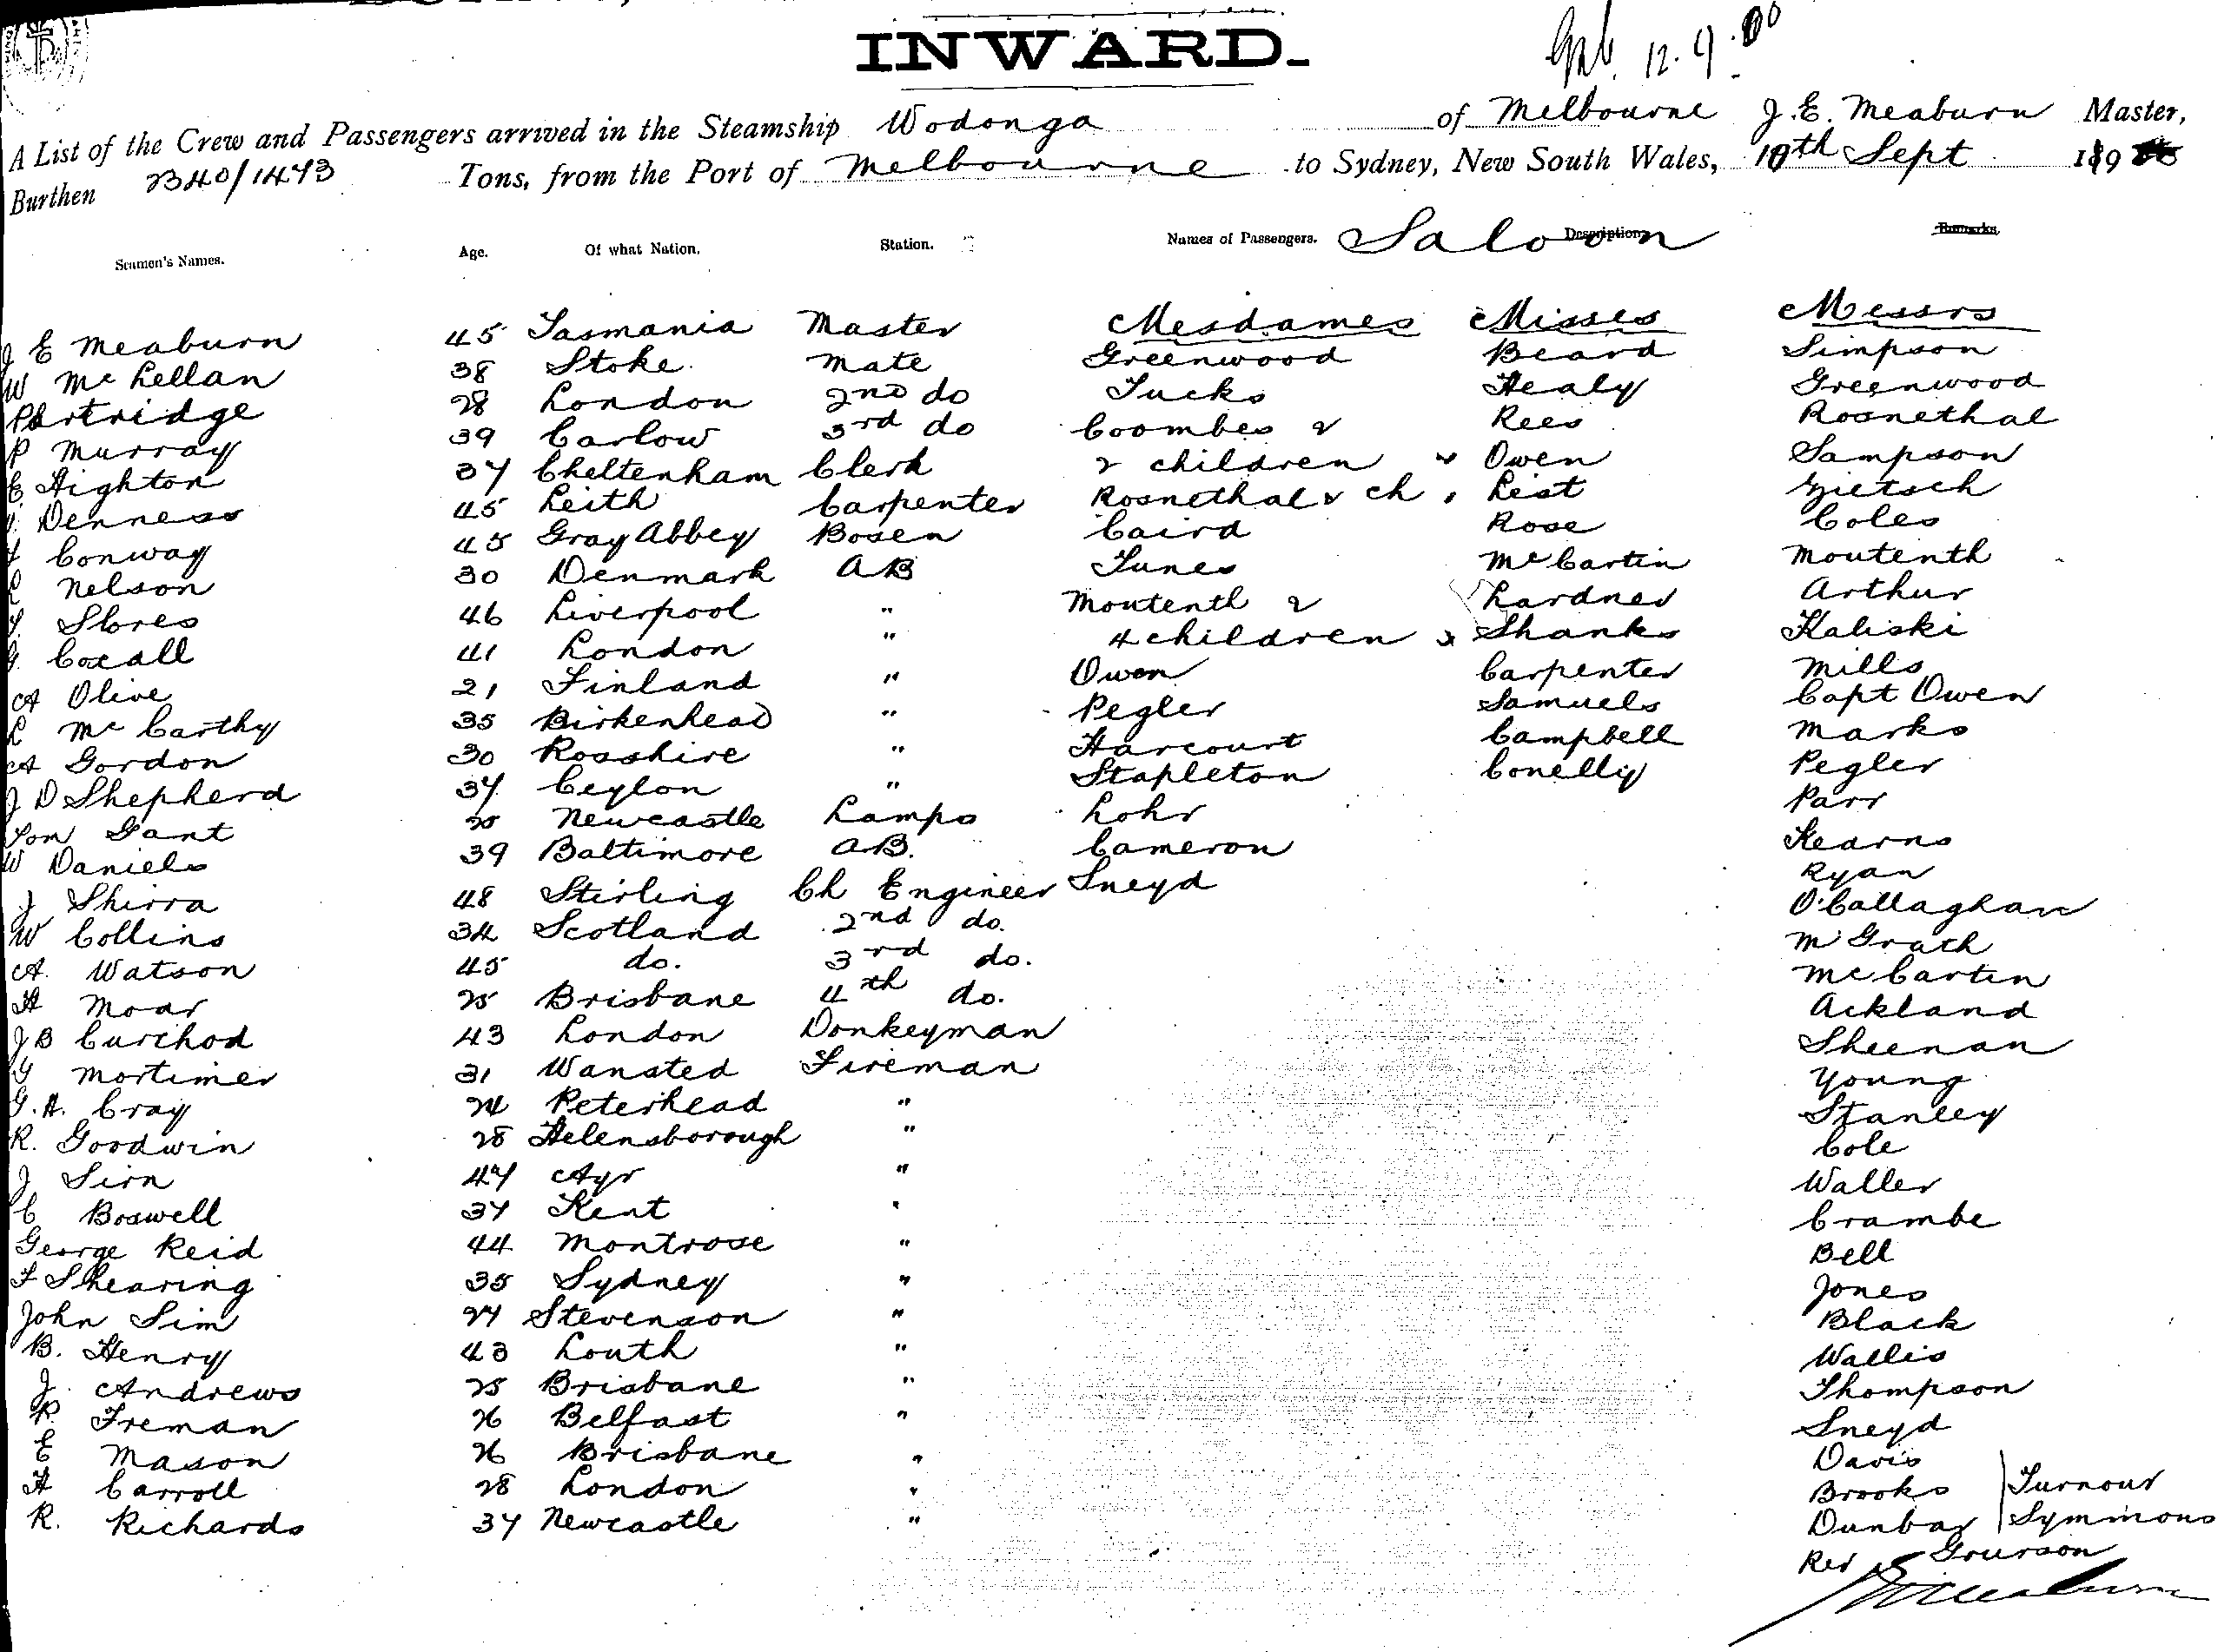 INWARD.
12.9.00
A List of the Crew and Passengers arrived in the Steamship Wodonga of Melbourne J. E. Meaburn Master,
Burthen 2340/1473 Tons, from the Port of Melbourne to Sydney, New South Wales, 10th Sept 19
Seamen's Names. Age. Of what Nation. Station. Names of Passengers. Saloon Description Remarks
Mesdames Misses Messrs
J E Meaburn 45 Tasmania Master Greenwood Beard Simpson
W McLellan 38 Stoke. Mate Tucks Healy Greenwood
Partridge 28 London 2nd do Coombes & Rees Rosnethal
P Murray 39 Carlow 3rd do 2 children Owen Sampson
E Highton 37 Cheltenham Clerk Rosnethal & ch List Zietsch
Denness 45 Leith Carpenter Caird Rose Coles
Conway 45 Gray Abbey Bosen Tunes McCartin Moutenth
Nelson 30 Denmark AB Moutenth & Lardner Arthur
Slores 46 Liverpool " 4 children Shanks Kaliski
G. Coxall 41 London " Owen Carpenter Mills
A Olive 21 Finland " Pegler Samuels Capt Owen
McCarthy 35 Birkenhead " Harcourt Campbell Marks
A Gordon 30 Rosshire " Stapleton Conelly Pegler
J D Shepherd 37 Ceylon " Lohr Parr
Tom Gant 25 Newcastle Lamps Cameron Kearns
W Daniels 39 Baltimore A.B. Sneyd Ryan
J Shirra 48 Stirling Ch Engineer O'Callaghan
W Collins 34 Scotland 2nd do. McGrath
A. Watson 45 do. 3rd do. McCartin
H Moar 25 Brisbane 4th do. Ackland
J B Curchod 43 London Donkeyman Sheenan
G Mortimer 31 Wansted Fireman Young
G. A. Cray 24 Peterhead " Stanley
R. Goodwin 28 Helensborough " Cole
J Sirn 47 Ayr " Waller
C Boswell 37 Kent " Crambe
George Reid 44 Montrose " Bell
F Shearing 35 Sydney " Jones
John Sim 27 Stevenson " Black
B. Henry 43 Louth " Wallis
J. Andrews 25 Brisbane " Thompson
P. Freman 26 Belfast " Sneyd
E Mason 26 Brisbane " Davis
H Carroll 28 London " Brooks Turnour
R. Richards 37 Newcastle " Dunbar Symmons
Rev Grurson